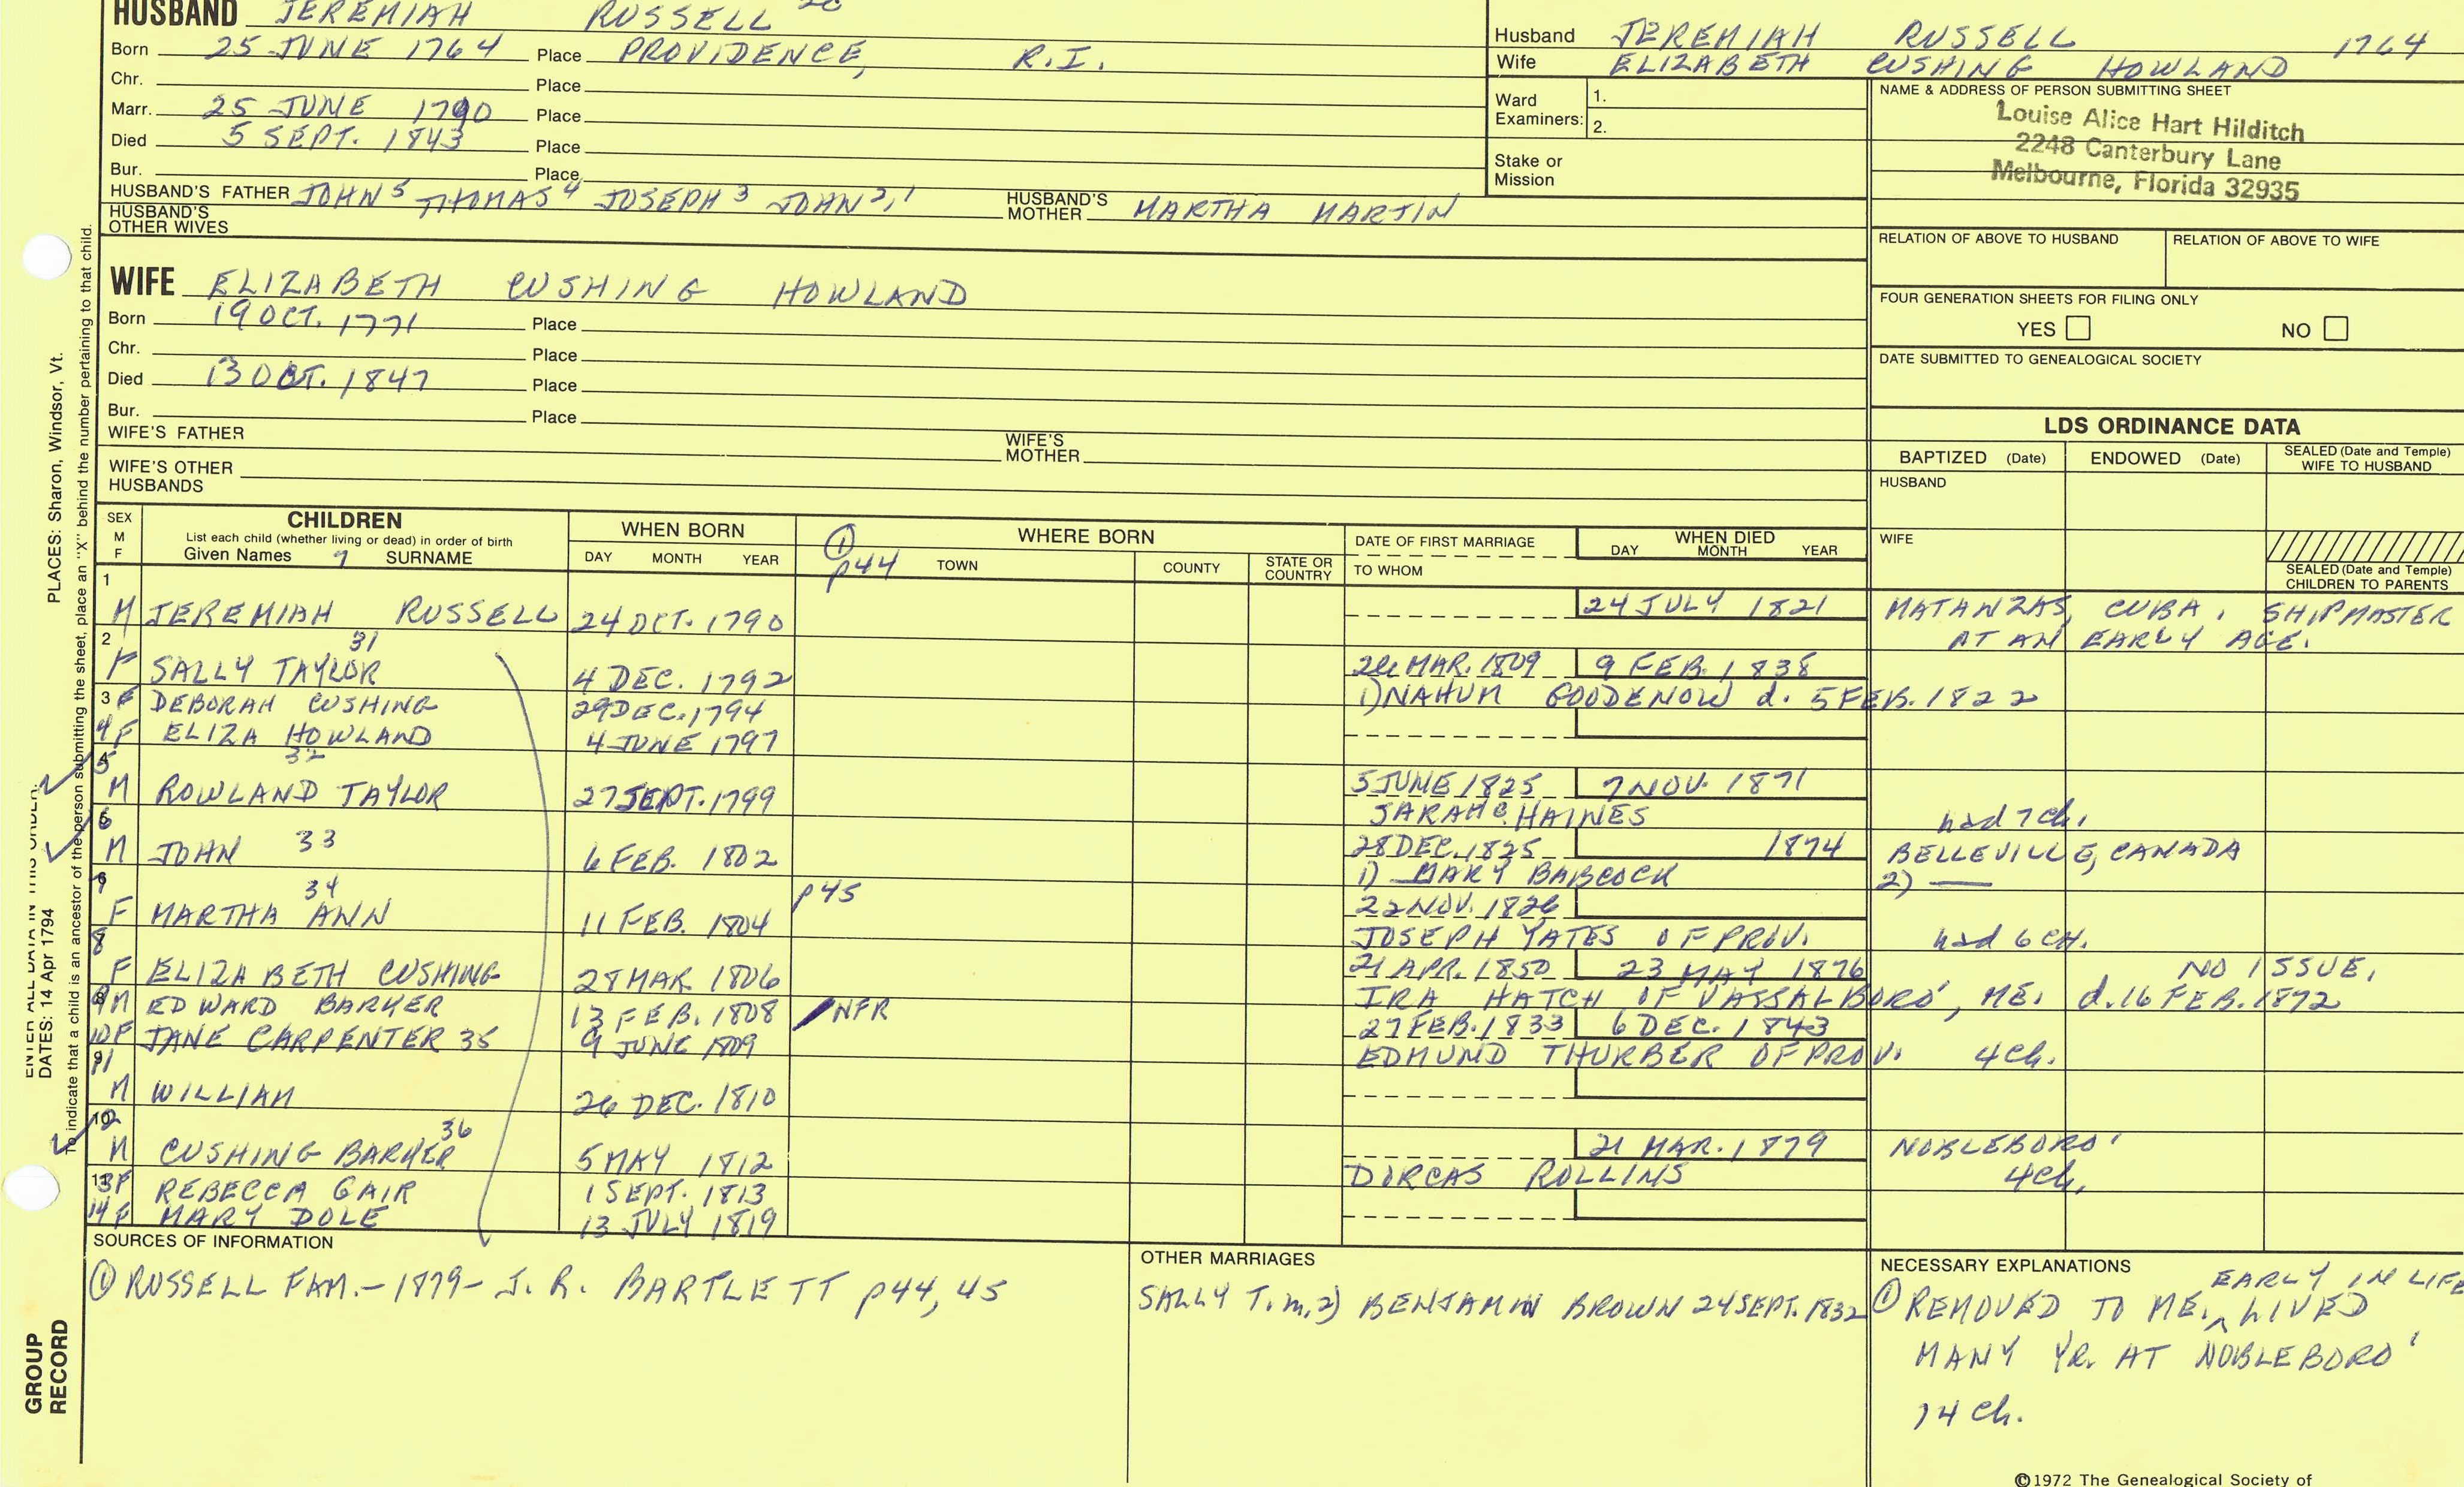 HUSBAND JEREMIAH RUSSELL
Born 25 JUNE 1764 Place PROVIDENCE, R.I.
Chr. Place
Marr. 25 JUNE 1790 Place
Died 5 SEPT. 1843 Place
Bur. Place
HUSBAND'S FATHER JOHN 5 THOMAS 4 JOSEPH 3 JOHN 2,1 HUSBAND'S MOTHER MARTHA MARTIN
HUSBAND'S OTHER WIVES
WIFE ELIZABETH CUSHING HOWLAND
Born 19 OCT. 1771 Place
Chr. Place
Died 13 OCT. 1847 Place
Bur. Place
WIFE'S FATHER WIFE'S MOTHER
WIFE'S OTHER HUSBANDS
Husband JEREMIAH RUSSELL 1764
Wife ELIZABETH CUSHING HOWLAND
Ward Examiners: 1.
2.
Stake or Mission
NAME & ADDRESS OF PERSON SUBMITTING SHEET
Louise Alice Hart Hilditch
2248 Canterbury Lane
Melbourne, Florida 32935
RELATION OF ABOVE TO HUSBAND RELATION OF ABOVE TO WIFE
FOUR GENERATION SHEETS FOR FILING ONLY
YES NO
DATE SUBMITTED TO GENEALOGICAL SOCIETY
LDS ORDINANCE DATA
BAPTIZED (Date) ENDOWED (Date) SEALED (Date and Temple) WIFE TO HUSBAND
HUSBAND
WIFE
SEALED (Date and Temple) CHILDREN TO PARENTS
SEX M F
CHILDREN
List each child (whether living or dead) in order of birth
Given Names 7 SURNAME
WHEN BORN
DAY MONTH YEAR
WHERE BORN
① p44 TOWN COUNTY STATE OR COUNTRY
DATE OF FIRST MARRIAGE
TO WHOM
WHEN DIED
DAY MONTH YEAR
1 M JEREMIAH RUSSELL 24 OCT. 1790 24 JULY 1821 MATANZAS, CUBA. SHIPMASTER
AT AN EARLY AGE.
2 F SALLY TAYLOR 31 4 DEC. 1792 MAR. 1809 9 FEB. 1838
1) NAHUM GOODENOW d. 5 FEB. 1822
3 F DEBORAH CUSHING 29 DEC. 1794
4 F ELIZA HOWLAND 4 JUNE 1797
5 M ROWLAND TAYLOR 32 27 SEPT. 1799 5 JUNE 1825 7 NOV. 1871
SARAH C. HAINES had 7 ch.
6 M JOHN 33 6 FEB. 1802 28 DEC. 1825 1874 BELLEVILLE, CANADA
1) MARY BABCOCK 2) —
7 F MARTHA ANN 34 11 FEB. 1804 p45 22 NOV. 1826
JOSEPH YATES OF PROV. had 6 CH.
8 F ELIZABETH CUSHING 28 MAR. 1806 21 APR. 1850 23 MAY 1876 NO ISSUE.
IRA HATCH OF VASSALBORO', ME. d. 16 FEB. 1872
9 M EDWARD BARKER 13 FEB. 1808 NFR
10 F JANE CARPENTER 35 9 JUNE 1809 27 FEB. 1833 6 DEC. 1843
EDMUND THURBER OF PROV. 4 Ch.
11 M WILLIAM 26 DEC. 1810
12 M CUSHING BARKER 36 5 MAY 1812 21 MAR. 1879 NOBLEBORO'
DORCAS ROLLINS 4 Ch.
13 F REBECCA GAIR 1 SEPT. 1813
14 F MARY DOLE 13 JULY 1819
SOURCES OF INFORMATION
① RUSSELL FAM. - 1879 - J. R. BARTLETT p44, 45
OTHER MARRIAGES
SALLY T. m. 2) BENJAMIN BROWN 24 SEPT. 1832
NECESSARY EXPLANATIONS
EARLY IN LIFE
① REMOVED TO ME. ^ LIVED
MANY YR. AT NOBLEBORO'
14 Ch.
©1972 The Genealogical Society of
PLACES: Sharon, Windsor, Vt.
ENTER ALL DATA IN THIS ORDER:
DATES: 14 Apr 1794
To indicate that a child is an ancestor of the person submitting the sheet, place an "X" behind the number pertaining to that child.
GROUP RECORD